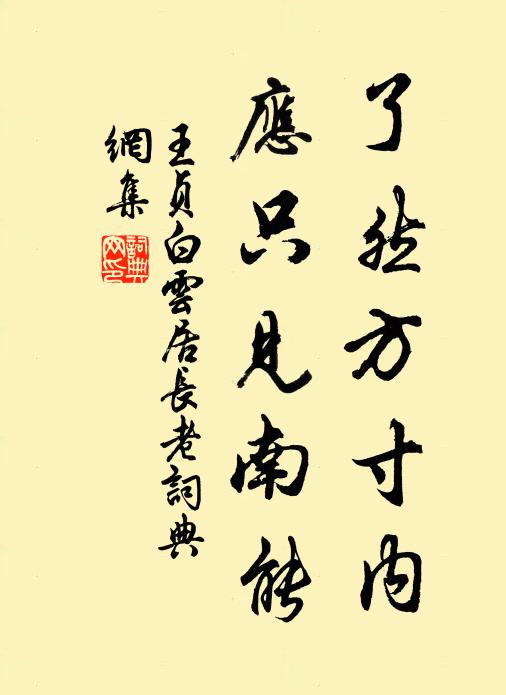 了然方寸内
應只見南能
王貞白雲居長老詞典
網集
詞典
网印